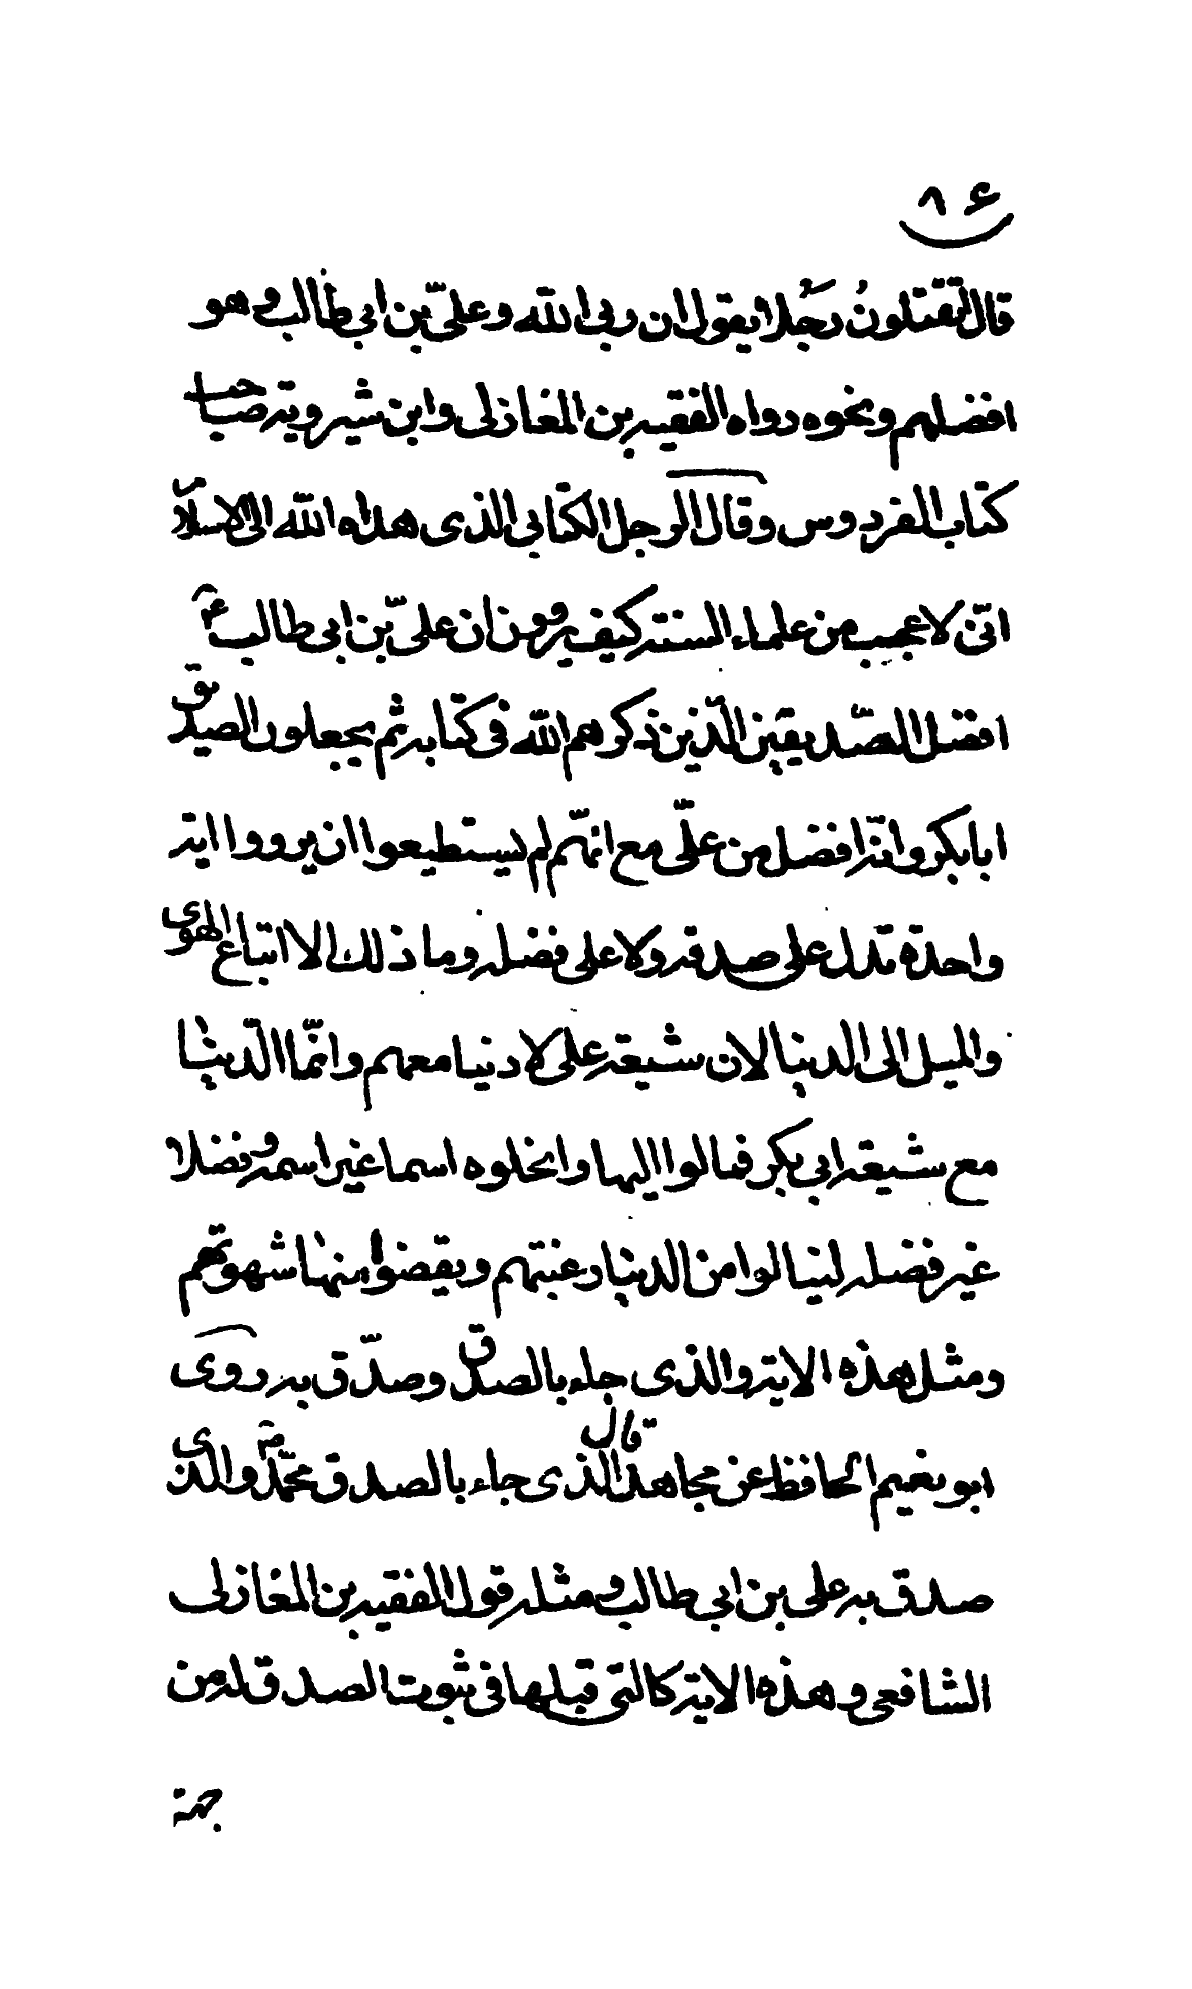 ٨۶
قال اتقتلون رجلا يقول ان ربى الله وعلىّ بن ابى طالب وهو
افضلهم ونحوه رواه الفقيه بن المغازلى وابن شيرويه صاحب
كتاب الفردوس وقال الرجل الكتابى الذى هداه الله الى الاسلام
انّى لاعجب من علماء السنته كيف يروون ان علىّ بن ابى طالب ع
افضل الصّديقين الّذين ذكرهم الله فى كتابه ثم يجعلون الصديق
ابا بكر وانّه افضل من علّى مع انهّم لم يستطيعوا ان يرووا اية
واحدة تدل على صدقه ولا على فضله وما ذلك الا اتباع الهوى
والميل الى الدنيا لان شيعة على لا دنيا معهم وانمّا الدّنيا
مع شيعة ابى بكر فمالوا اليها وانحلوه اسما غير اسمه وفضلا
غير فضله لينالوا من الدنيا رغبتهم ويقضوا منها شهوتهم
ومثل هذه الاية والذى جاء بالصدق وصدّق به روى
ابو نعيم الحافظ عن مجاهد قال الذى جاء بالصدق محمّد ص والذى
صدق به على بن ابى طالب ومثله قول الفقيه بن المغازلى
الشافعى وهذه الاية كالتى قبلها فى ثبوت الصدق له من
جهة